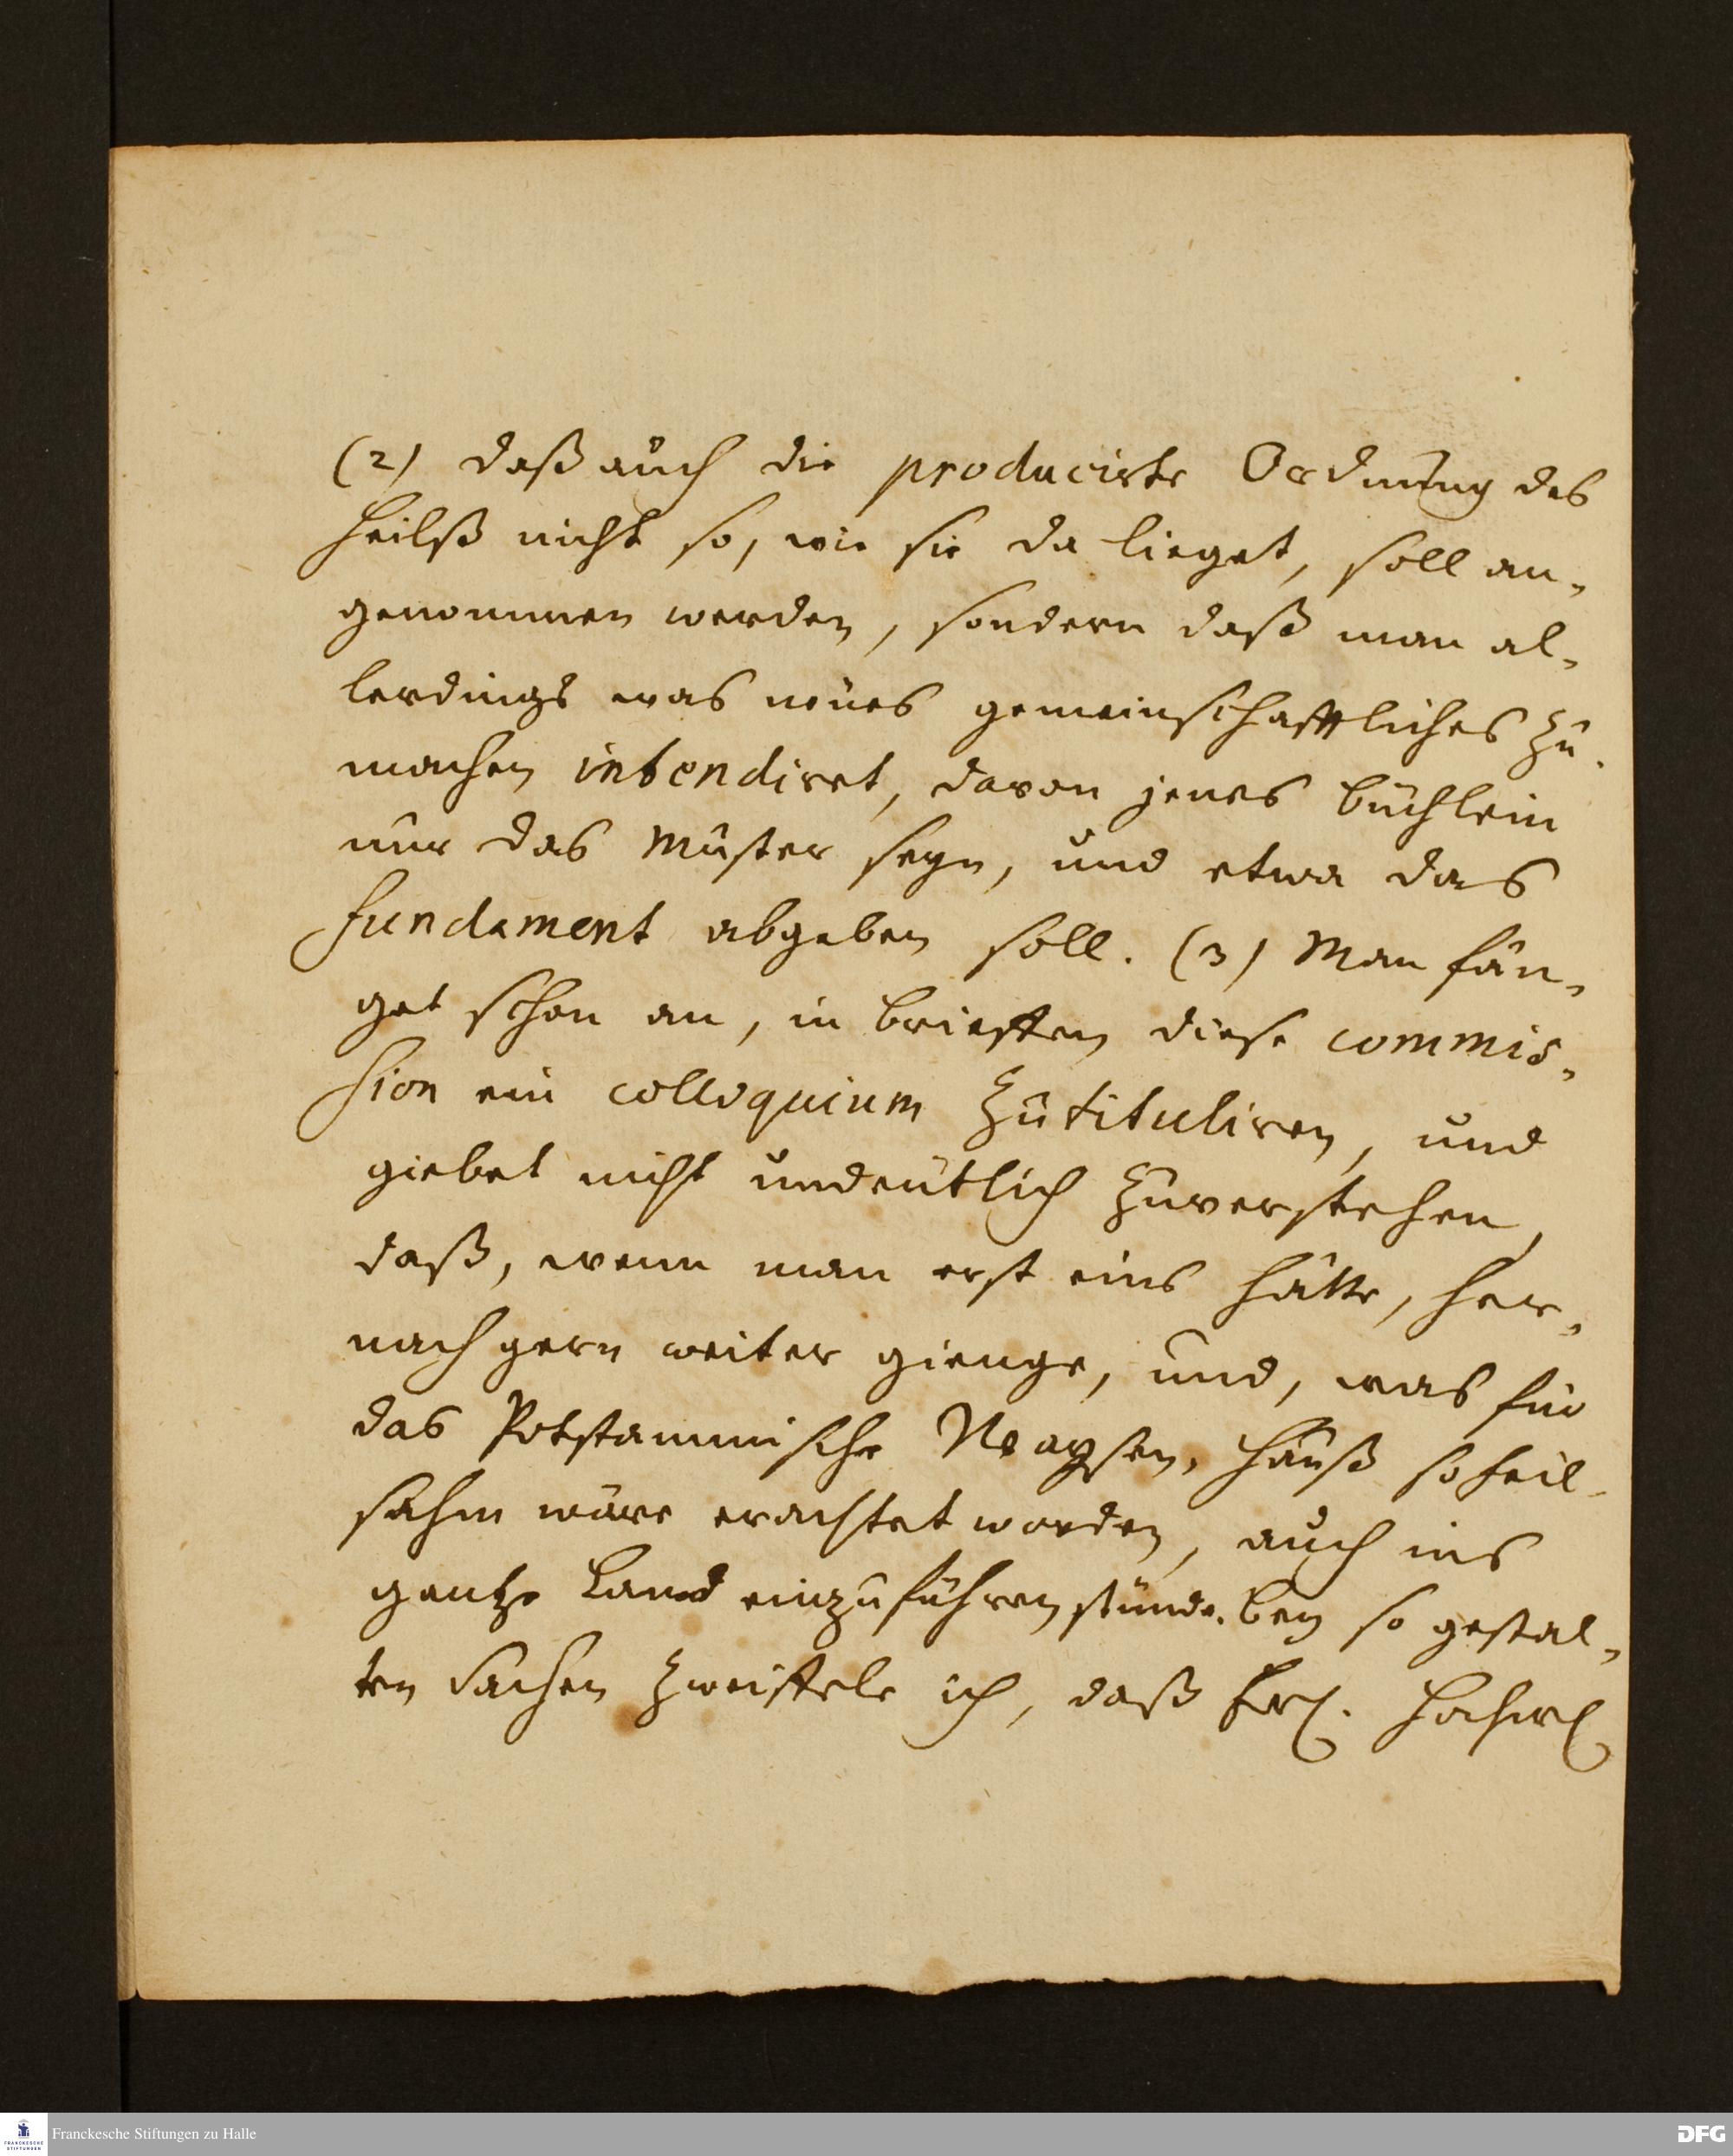 (2) daß auch die producirte Ordnung des
Heilß nicht so, wie sie da lieget, soll an-
genommen werden, sondern daß man al-
lerdings was neues gemeinschafftliches zu
machen intendiret, davon jenes büchlein
nur das Muster seyn, und etwa das
fundament abgeben soll. (3) Man fän-
get schon an, in brieffen diese commis-
sion ein colloquium zutituliren, und
giebet nicht undeutlich zuverstehen,
daß, wenn man erst eins hätte, her-
nach gern weiter gienge, und, was für
das Potstammische Waysen-Hauß so heil-
sahm wäre erachtet worden, auch ins
gantze Land einzuführen stünde. bey so gestal-
ten Sachen zweiffele ich, daß Ew. Hochw
Franckesche Stiftungen zu Halle
FRANCKESCHE
STIFTUNGEN
DFG